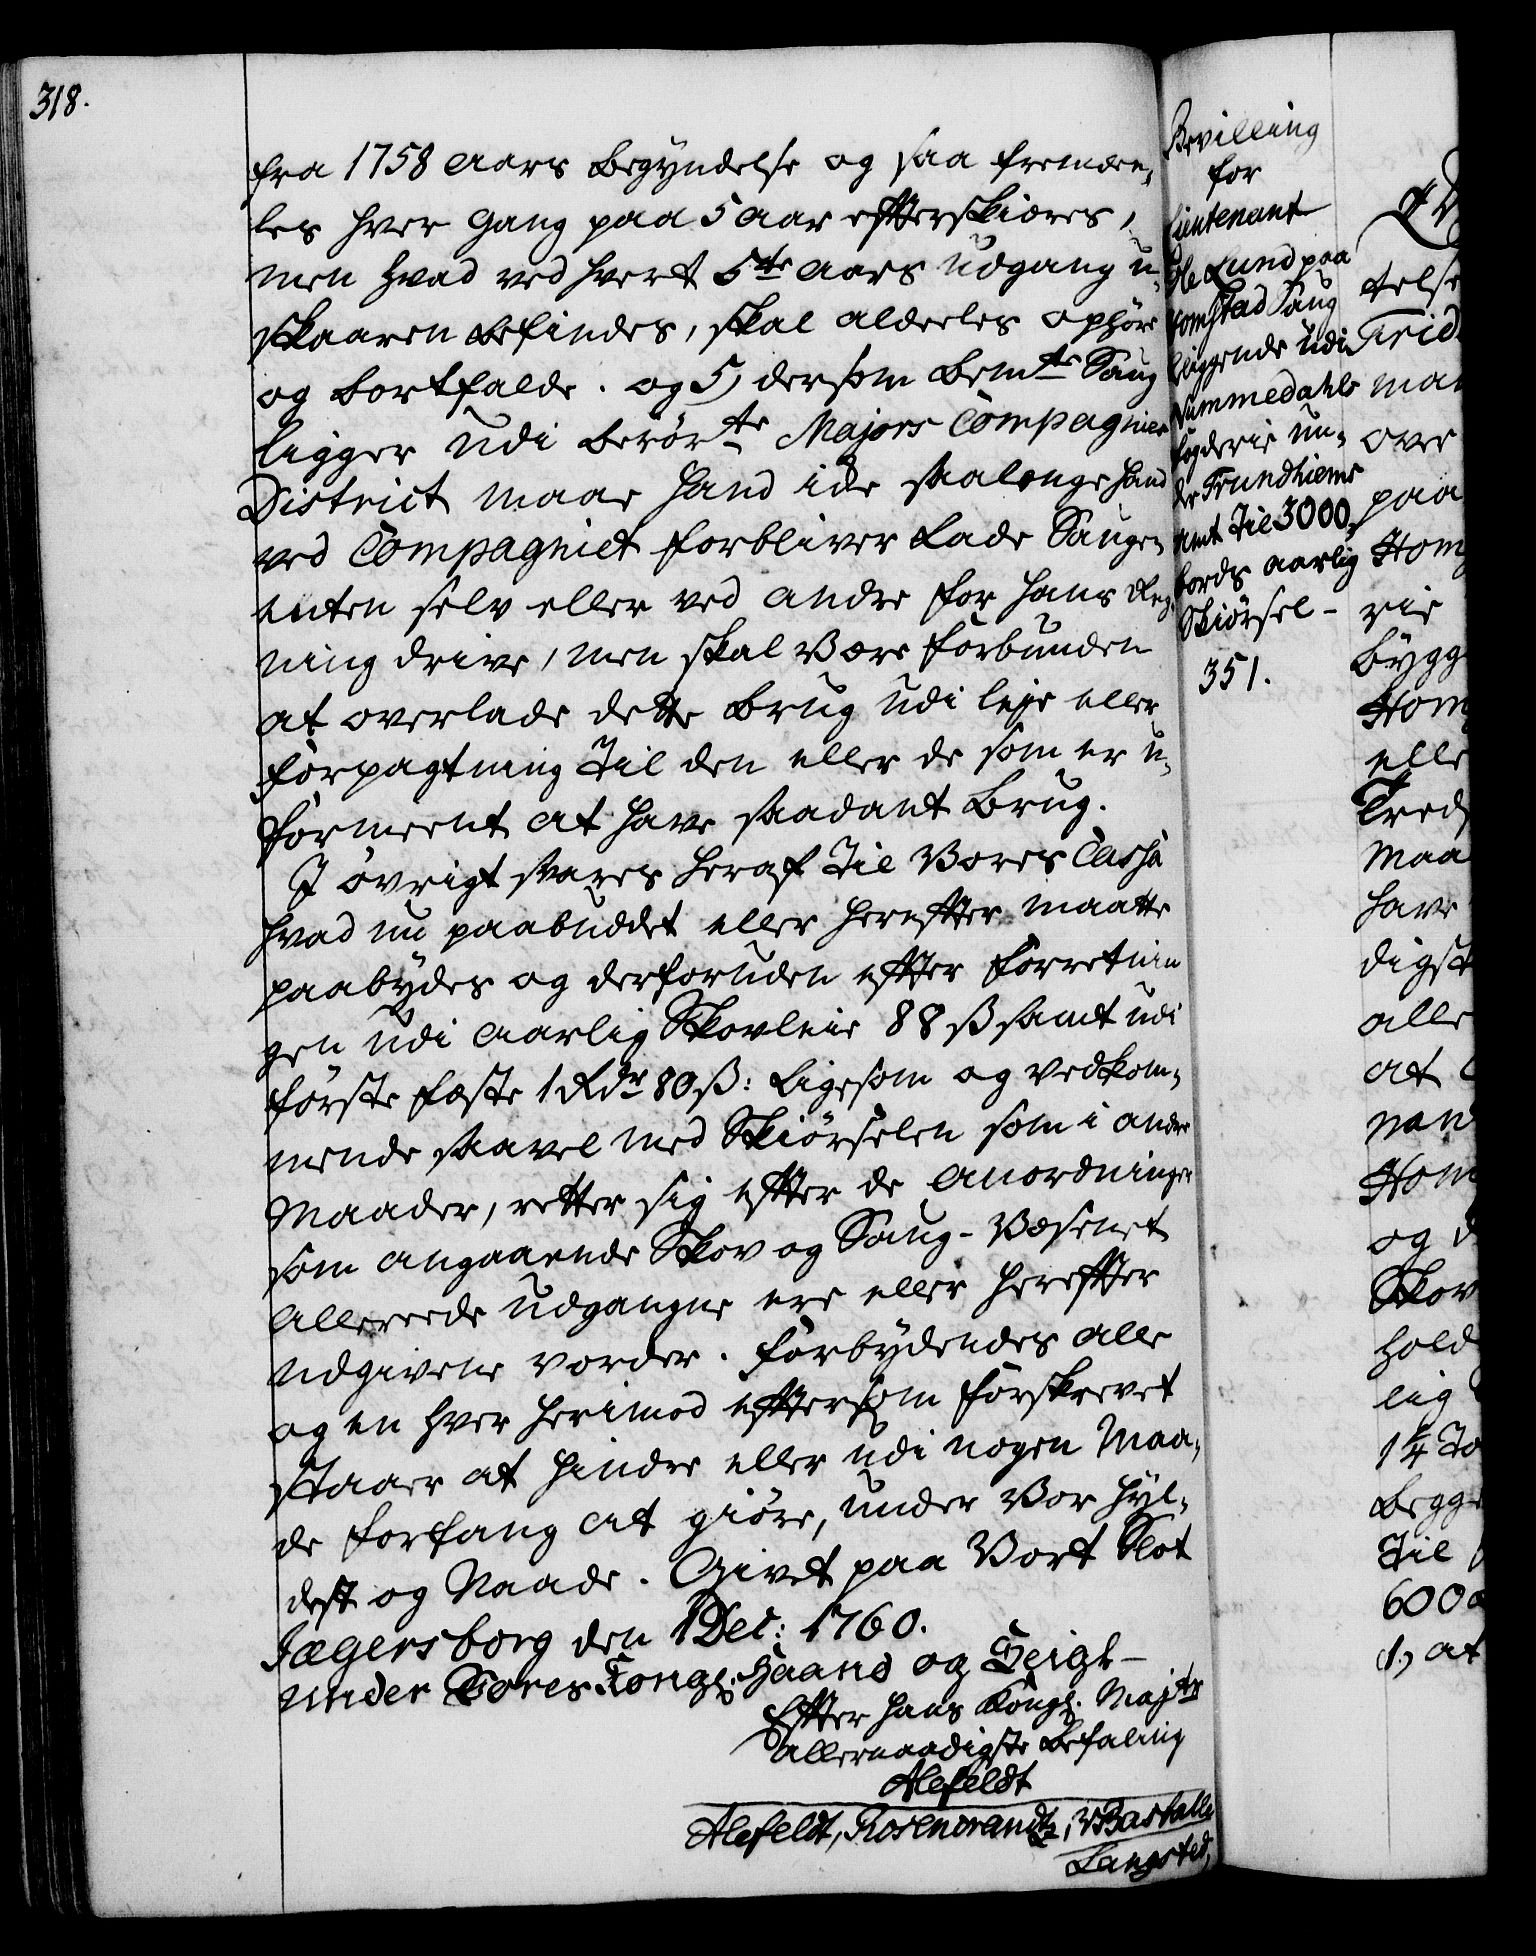 318.
fra 1758 Aars Begyndelse og saa fremdee,
les hver Gang paa 5 Aar efterskiæres,
men hvad ved hvert 5te Aars Udgang u,
skaaren befindes, skal aldeeles ophøre
og bortfalde. og 5, dersom bemte Saug
ligger udi berørte Majors Compagnies
District maae hand icke saalenge hand
ved Compagniet forbliver lade Saugen
enten selv eller ved andre for hans Reg,
ning drive, men skal være forbunden
at overlade dette Brug udi leje eller
forpagtning til den eller de som er u,
formeent at have saadant Brug.
I øvrigt svares heraf til Vores Cassa
hvad nu paabuddet eller herefter maatte
paabydes og derforuden efter forretnin
gen udi aarlig Skovleie 88 ß samt udi
første fæste 1 Rdr 80 ß: Ligesom og vedkom,
mende saavel med Skiørselen som i andre
Maader, retter sig efter de Anordninger
som angaaende Skov og Saug-Væsenet
allereede udgangne ere eller herefter
udgivene vorder. Forbydendes alle
og en hver herimod eftersom forskrevet
staaer at hindre eller udi nogen Maa,
de forfang at giøre, under Vor Hyl,
dest og Naade. Givet paa Vort Slot
Jægersborg den 1 Dec: 1760.
under Vores Kongl: Haand og Seigl-
Efter Hans Kongl. Majts
allernaadigste Befaling
Alefeldt
Alefeldt, Rosencrandtz,
Langsted,
Bevilling
for
Lieutenant
Ole Lund paa
Saug
liggende udi
Nummedahls
fogderie un,
der Trundhiems
Amt til 3000
bords aarlig
Skiørsel-
351.
telse
Frid
man
over
paa
Hom
rie
bygg
Hom
elle
Tred
Maa
have
digst
alle
at
Hom
og d
Skov
hold
lig
1¼ To
begge
til
600
1, at